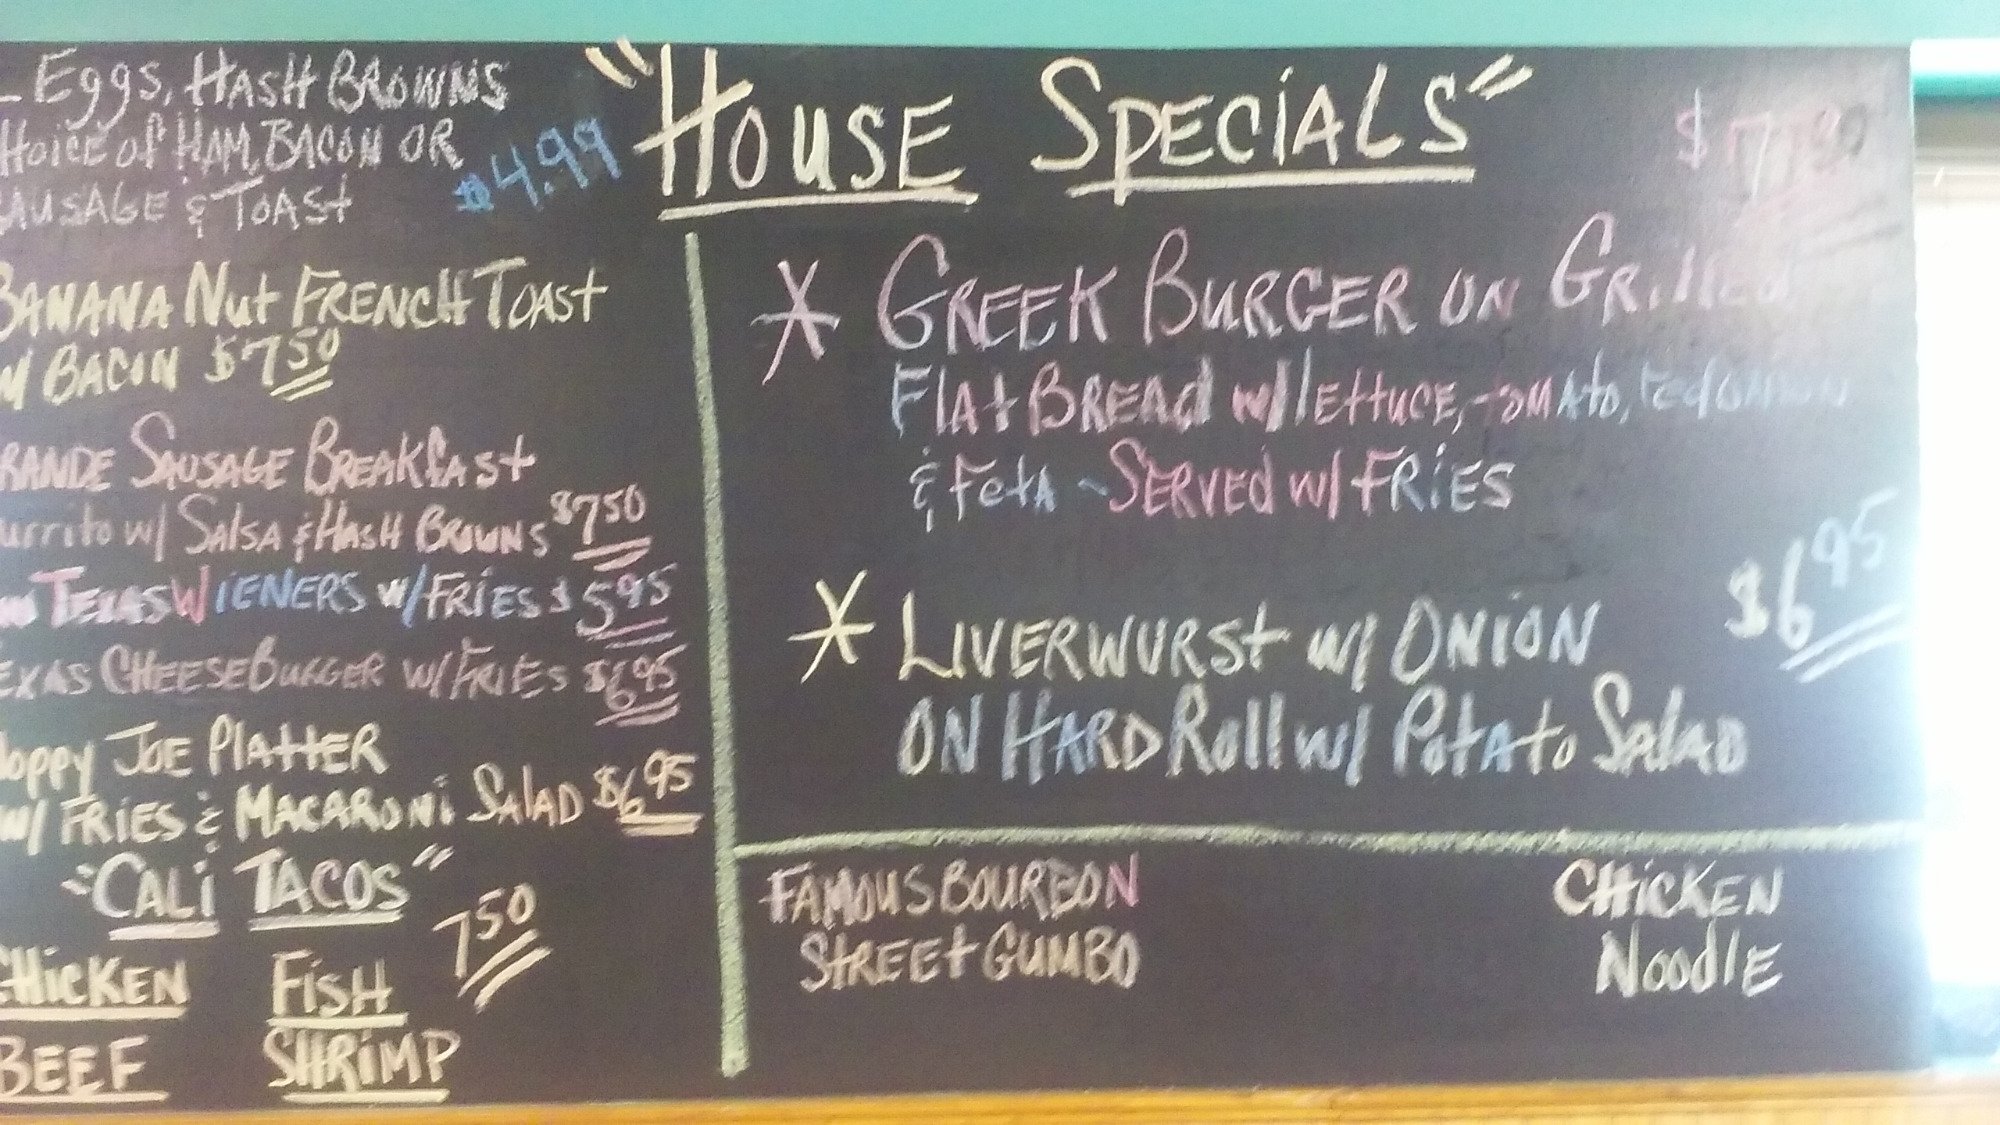 "House Specials"
Eggs, Hash Browns
Choice of Ham, Bacon or
Sausage & Toast
$4.99
Banana Nut French Toast
w/ Bacon $7.50
Grande Sausage Breakfast
Burrito w/ Salsa & Hash Browns $7.50
Texas Wieners w/ Fries $5.95
Texas Cheeseburger w/ Fries $6.95
Sloppy Joe Platter
w/ Fries & Macaroni Salad $6.95
"Cali Tacos"
7.50
Chicken Fish
Beef Shrimp
* Greek Burger on Grilled
Flat Bread w/ lettuce, tomato, red onion
& Feta ~ Served w/ Fries
* Liverwurst w/ Onion
$6.95
on Hard Roll w/ Potato Salad
Famous Bourbon
Street Gumbo
Chicken
Noodle